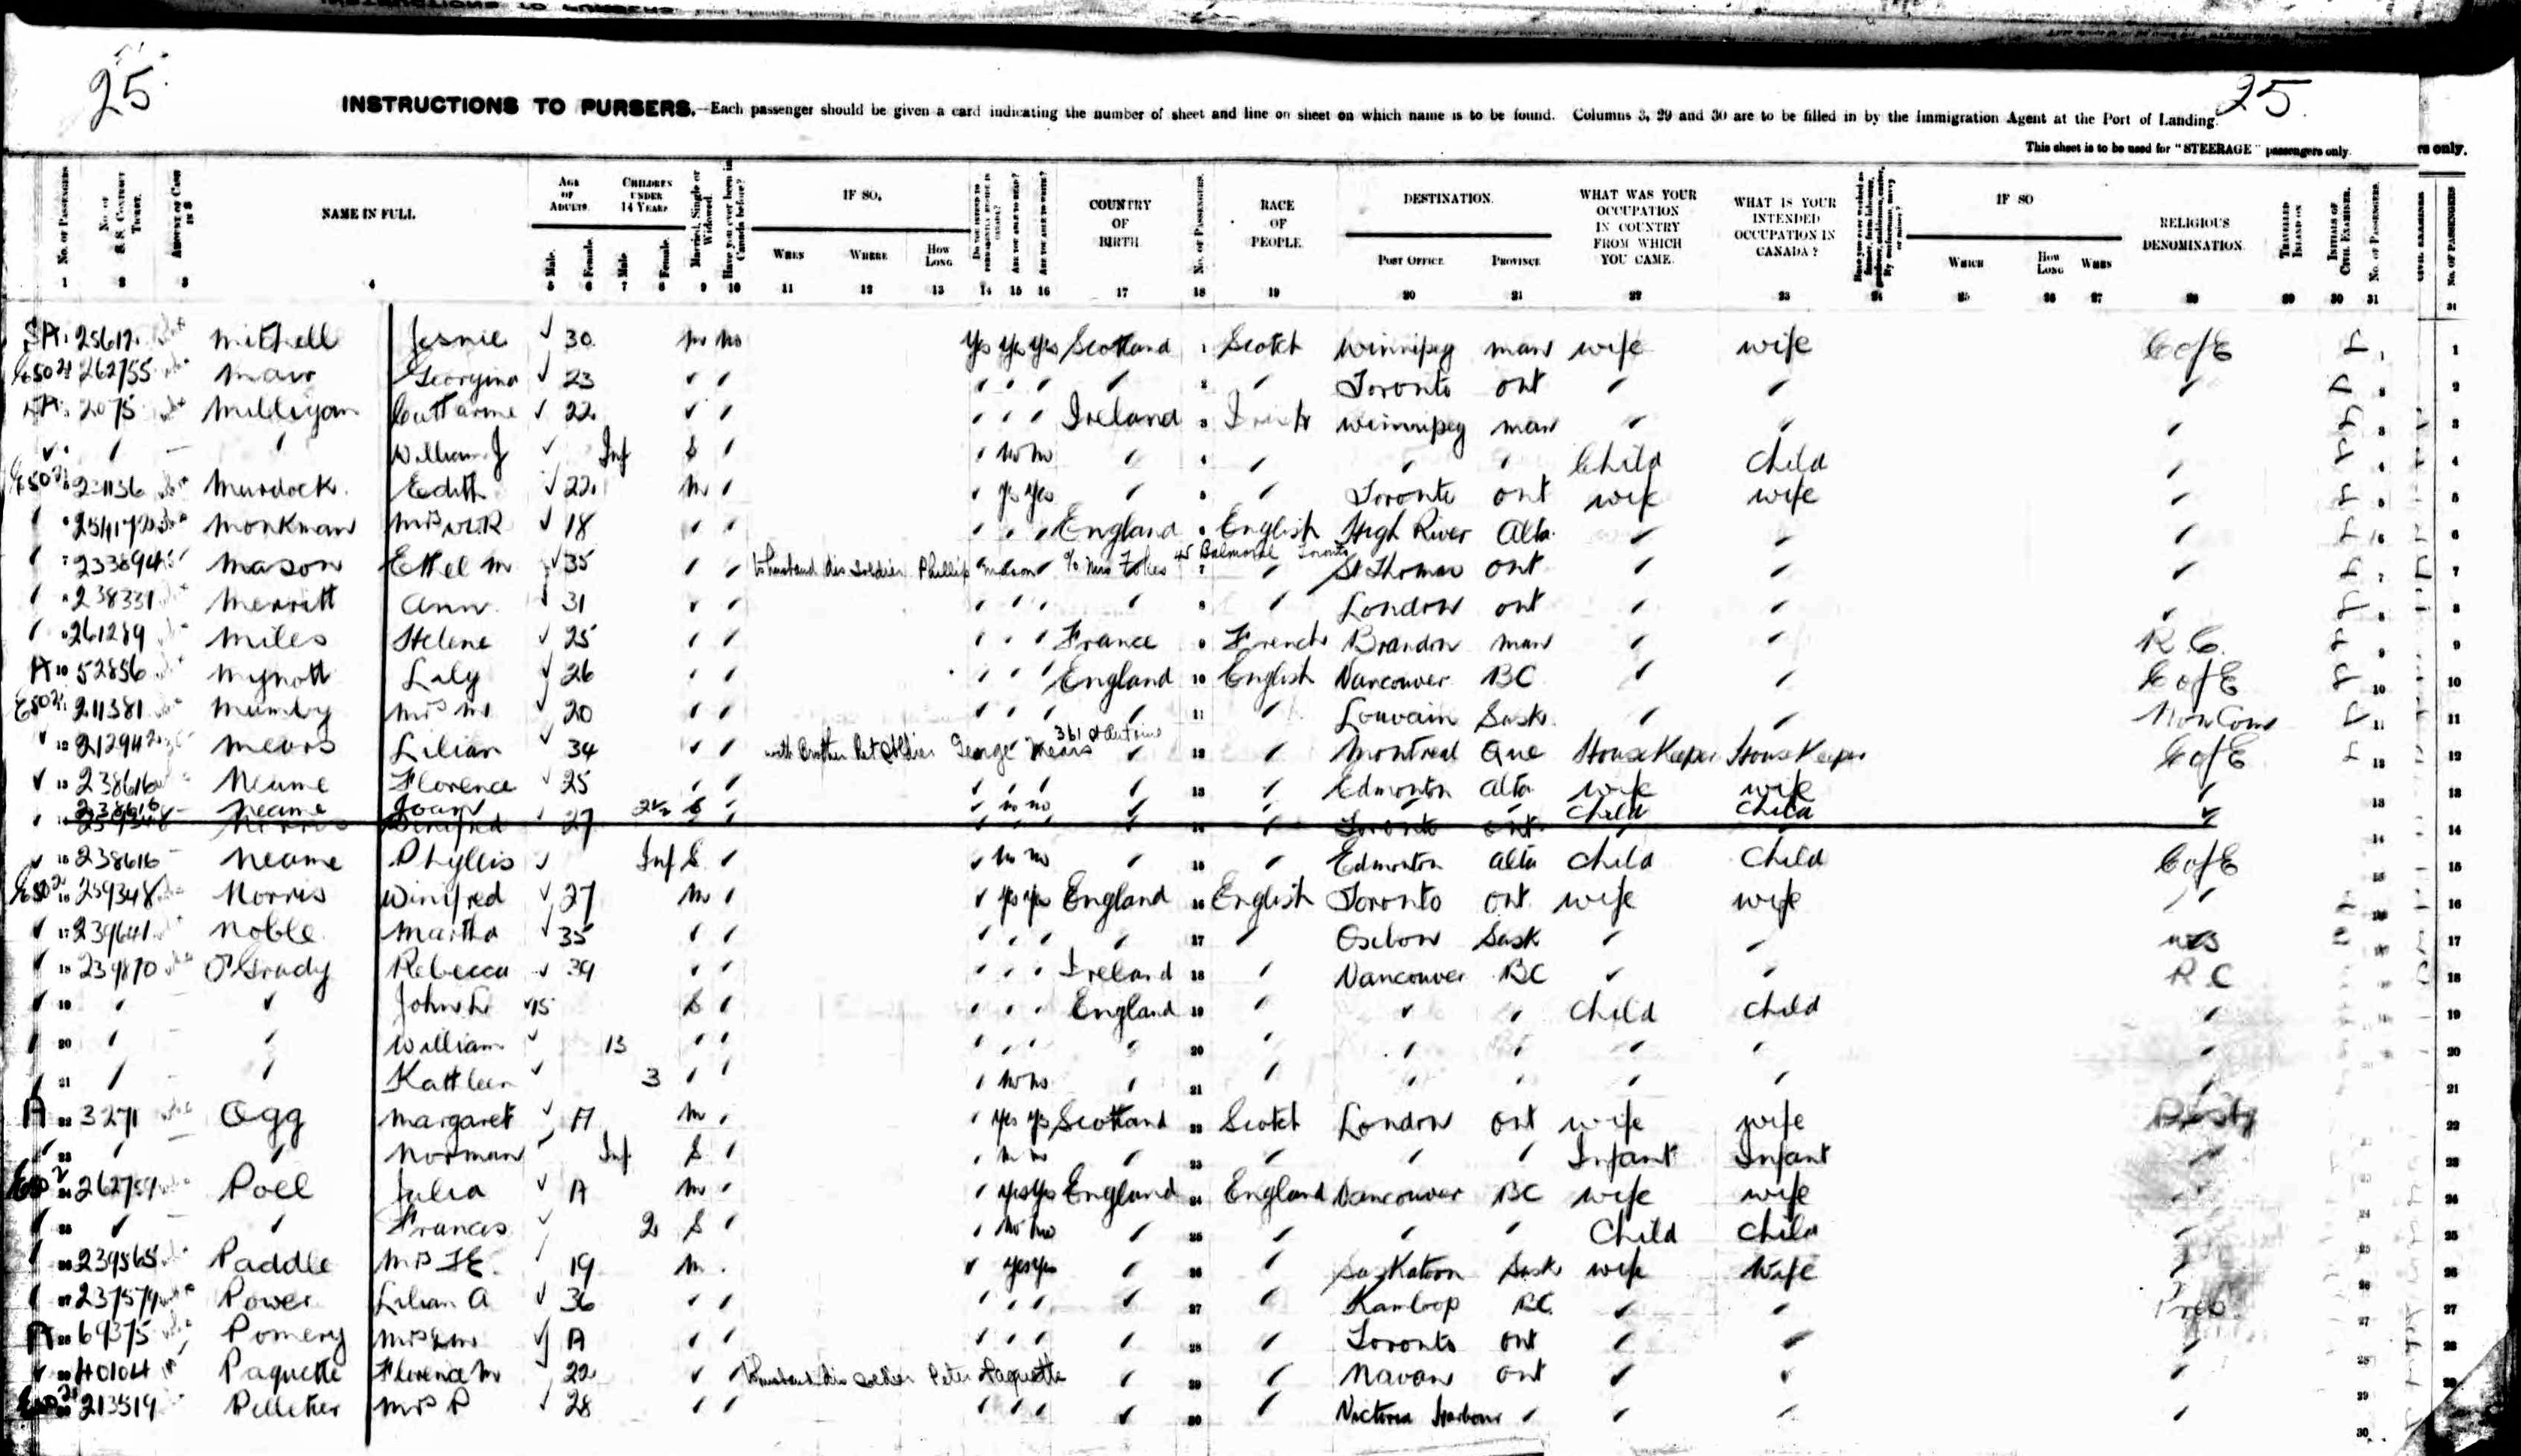 25
25
INSTRUCTIONS TO PURSERS.—Each passenger should be given a card indicating the number of sheet and line on sheet on which name is to be found. Columns 3, 29 and 30 are to be filled in by the Immigration Agent at the Port of Landing.
This sheet is to be used for "STEERAGE" passengers only.
No. of Passengers No. of S.S. Contract Ticket. Amount of Cash in $ NAME IN FULL. Age of Adults. Male. Female. Children under 14 Years Male. Female. Married, Single or Widowed. Have you ever been in Canada before? IF SO, When Where How Long Do you intend to permanently reside in Canada? Are you able to read? Are you able to write? COUNTRY OF BIRTH. No. of Passengers. RACE OF PEOPLE. DESTINATION. Post Office. Province WHAT WAS YOUR OCCUPATION IN COUNTRY FROM WHICH YOU CAME. WHAT IS YOUR INTENDED OCCUPATION IN CANADA? IF SO Which How Long When RELIGIOUS DENOMINATION. Travelled Inland on Initials of Civil Examiner. No. of Passengers.
1 2 3 4 5 6 7 8 9 10 11 12 13 14 15 16 17 18 19 20 21 22 23 24 25 26 27 28 29 30 31
Mitchell Jesnie 30 m no Yes Yes Yes Scotland 1 Scotch Winnipeg man wife wife C of E 1
262755 Mair Georgina 23 " " " " " " 2 " Toronto ont " " " 2
2075 Milligan Catharine 22 " " " " " Ireland 3 Irish Winnipeg man " " " 3
" " William J Inf S " " no no " 4 " " " Child Child " 4
Murdock Edith 22 m " " yes yes " 5 " Toronto ont wife wife " 5
Monkman Mrs W.R 18 " " " " " England 6 English High River Alta " " " 6
Mason Ethel M 35 " " to husband dis soldier Phillip Mason c/o Mrs Fokes 45 Balmoral Toronto 7 " St Thomas ont " " " 7
238331 Merritt Ann 31 " " " " " " 8 " London ont " " " 8
261289 Miles Helene 25 " " " " " France 9 French Brandon man " " R.C. 9
A 52856 Mynott Lily 26 " " " " " England 10 English Vancouver BC " " C of E 10
211381 Mumby Mrs M 20 " " " " " " 11 " Louvain Sask " " Non Con 11
Mears Lilian 34 " " with Brother Ret Soldier George Mears 361 " 12 " Montreal Que HouseKeeper HouseKeeper C of E 12
238616 Neame Florence 25 " " " " " " 13 " Edmonton alta wife wife " 13
238616 Neame Joan 2½ S " " no no " " Child Child "
Norris Winifred 27 " " 14 " Toronto ont 14
238616 Neame Phyllis Inf S " " no no " 15 " Edmonton alta Child Child C of E 15
259348 Norris Winifred 27 m " " yes yes England 16 English Toronto ont wife wife " 16
239641 Noble Martha 35 " " " " " " 17 " Oxbow Sask " " 17
239870 O'Grady Rebecca 39 " " " " " Ireland 18 " Vancouver BC " " R C 18
" " John L 15 S " " " " England 19 " " " Child Child " 19
" " William 13 " " " " " " 20 " " " " " " 20
" " Kathleen 3 " " " no no " 21 " " " " " " 21
A 3271 Ogg Margaret A m " " yes yes Scotland 22 Scotch London ont wife wife 22
" " Norman Inf S " " no no " 23 " " " Infant Infant " 23
262759 Poel Julia A m " " yes yes England 24 England Vancouver BC wife wife " 24
" " Frances 2 S " " no no " 25 " " " Child Child " 25
239565 Paddle Mrs F.E. 19 m " " yes yes " 26 " Saskatoon Sask wife Wife " 26
237579 Power Lilian A 36 " " " " " " 27 " Kamloop BC " " Pres 27
A 69375 Pomery Mrs A " " " " " " 28 " Toronto ont " " " 28
40104 Paquette Florence M 22 " " to husband dis soldier Peter Paquette " 29 " Navan ont " " " 29
213519 Pelletier Mrs P 28 " " " " " " 30 " Victoria Harbour " " " " 30